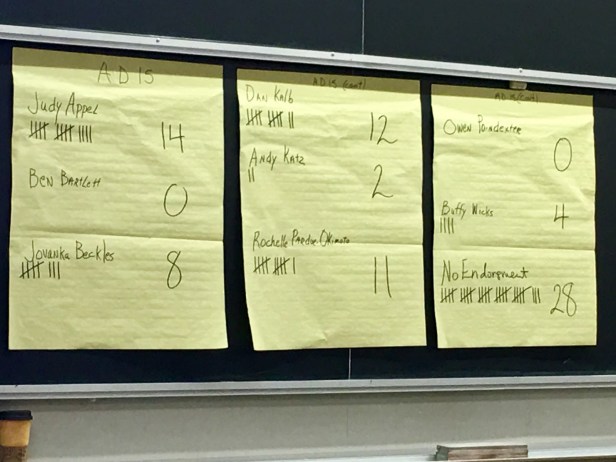 AD 15
Judy Appel
14
Ben Bartlett
0
Jovanka Beckles
8
AD 15 (cont)
Dan Kalb
12
Andy Katz
2
Rochelle Pardue-Okimoto
11
AD 15 (cont)
Owen Poindexter
0
Buffy Wicks
4
No Endorsement
28